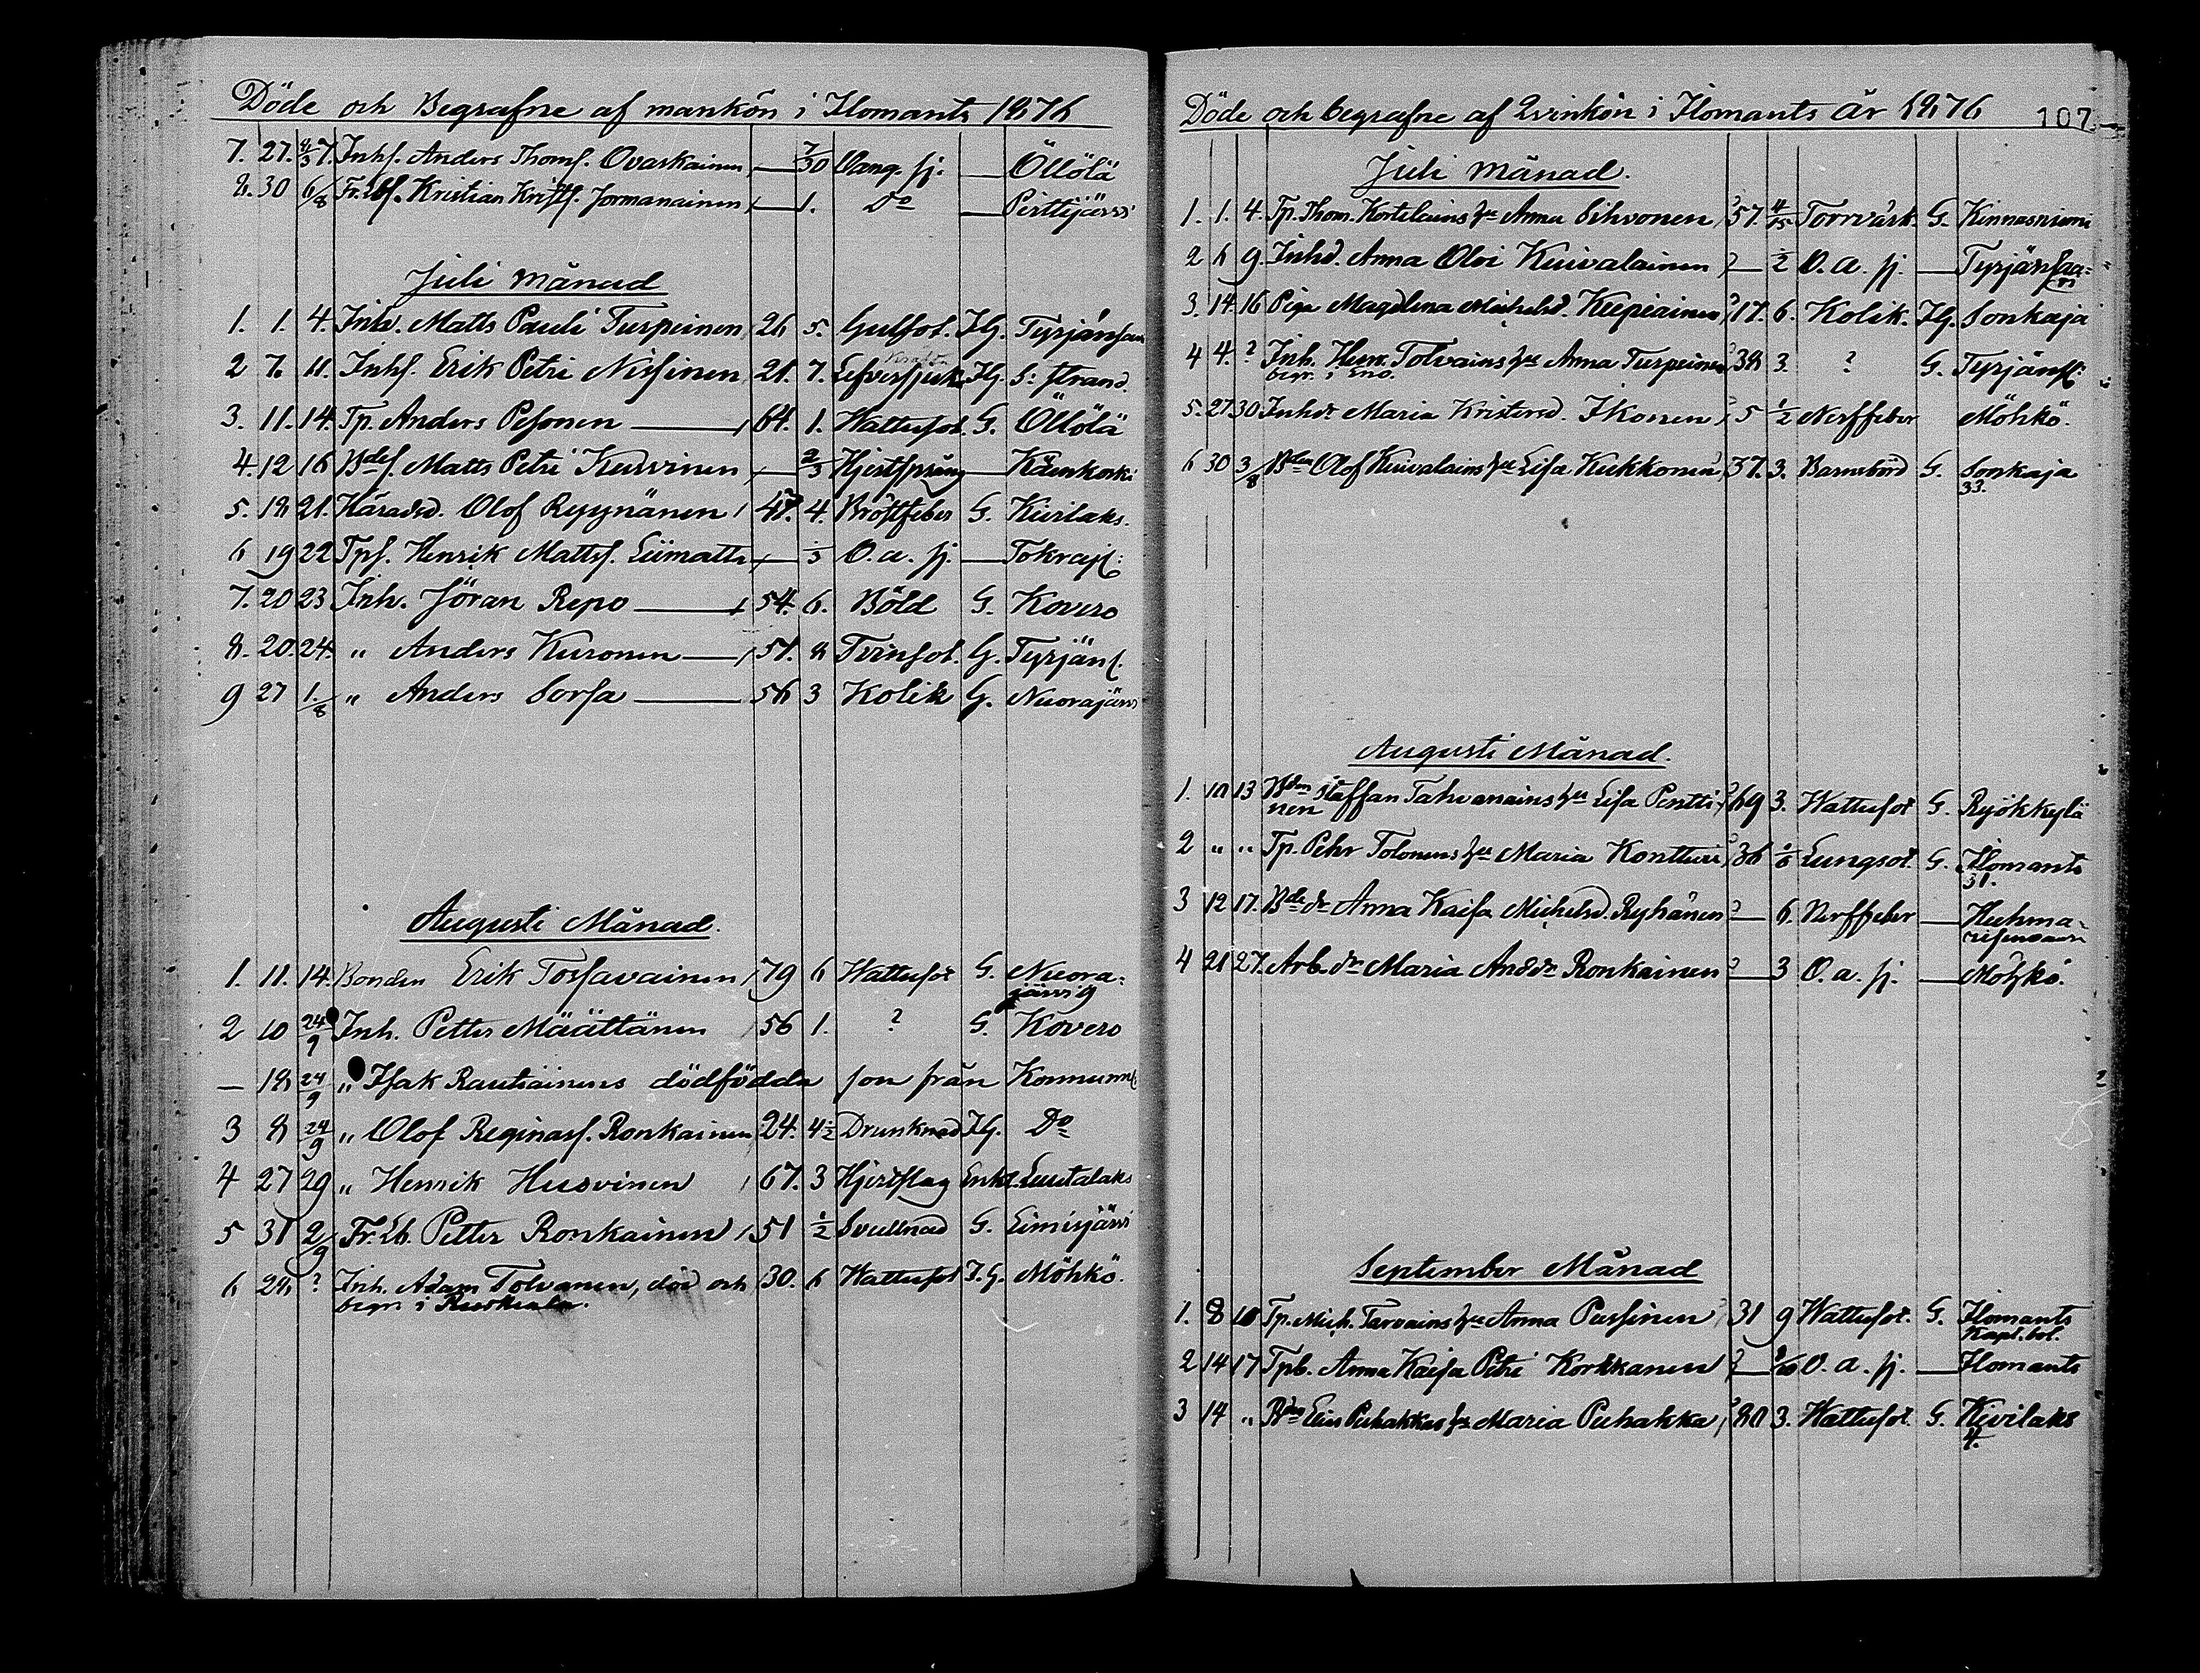 Döde och Begrafne af mankön i Ilomants 1876
7. 27. 7. Inhs. Anders Thoms. Ovaskainen — 7/30 Oang. sj. — Öllölä
8. 30 6/8 Fr. Lbs. Kristian Krists. Jormanainen — 1. Do — Perttijärvi
Juli månad
1. 1. 4. Inh. Matts Pauli Turpeinen 26 5. Gulsot. IG. Tyrjänsaa
2 7. 11. Inhs. Erik Petri Nissinen 21. 7. Lefversjuk. IG. S. strand.
3. 11. 14. Tp. Anders Pesonen — 64. 1. Wattusot. G. Öllölä
4. 12 16 Bdes. Matts Petri Kurvinen — 2/3 Hjertsprång — Kuenkoski
5. 18 21. Häradsd. Olof Ryynänen 47. 4. Bröstfeber G. Kuolaks.
6 19 22 Tps. Henrik Mattss. Liimatta — 1/3 O. a. sj. — Tokrajs:
7. 20 23 Inh. Jöran Repo — 54. 6. Böld G. Kovero
8. 20. 24. " Anders Kuronen — 51. 8 Tvinsot. G. Tyrjäns.
9 27 1/8 " Anders Sorsa — 56 3 Kolik G. Nuorajärvi
Augusti Månad.
1. 11. 14. Bonden Erik Tossavainen 79 6 Wattusot G. Nuora-
järvi 9
2 10 24/9 Inh. Petter Määttänen 56 1. ? G. Kovero
— 18 24/9 " Isak Rautiainens dödfödda son från Konnunn
3 8 24/9 " Olof Reginass. Ronkainen 24. 4 1/2 Drunknad IG. Do
4 27 29 " Henrik Husvinen 67. 3 Hjertslag Enkl. Luutalaks
5 31 2/9 Fr. Lb. Petter Ronkainen 51 1/2 Svullnad G. Liimisjärvi
6 28 ? Inh. Adam Tolvanen, död och 30. 6 Wattusot I.G. Möhkö.
begr. i Ruskeala.
Döde och begrafne af Qvinkön i Ilomants år 1876 107.
Juli månad.
1. 1. 4. Tp. Thom. Kortelains hu Anna Sihvonen 57. 4/15 Torrvärk. G. Kinnasniemi
2 6 9. Inhd. Anna Olvi Kuivalainen — 1/2 O. a. sj. — Tyrjänsaa-
ri
3. 14 16 Piga Magdlena Michelsd. Keepiainen 17. 6. Kolik. IG. Sonkaja
4 4. ? Inh. Hem. Tolvains hu Anna Turpeinen 38 3. ? G. Tyrjäns:
begr. i Eno.
5. 27 30 Inhdr Maria Kristersd. Ikonen 5 1/2 Nerffeber Möhkö.
6 30 3/8 Bden Olof Kuivalains hu Lisa Kukkonen 37. 3. Barnsbörd G. Sonkaja
33.
Augusti Månad.
1. 10 13 Bdn Staffan Tahvanains hu Lisa Pentti- 69 3. Wattusot G. Ryökkylä
nen
2 " " Tp. Pehr Tolonens hu Maria Kontturi 36 Lungsot G. Ilomants
31.
3 12 17. Bde dr Anna Kaisa Michelsd. Ryhänen — 6. Nerffeber — Huhma-
4 21 27. Arb. dr Maria Andsdr Ronkainen — 3 O. a. sj. — Möhkö.
September Månad
1. 8 10 Tp. Mich. Tarvains hu Anna Pussinen 31 9 Wattusot. G. Ilomants
Kapl. bol.
2 14 17 Tpb. Anna Kaisa Petri Korkkanen — O. a. sj. — Ilomants
3 14 " Bdn Elias Puhakkas hu Maria Puhakka 80 3. Wattusot. G. Kivilaks
4.